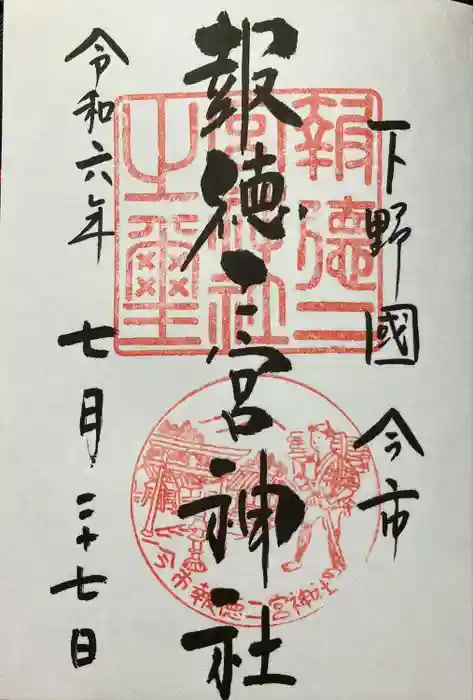 下野國 今市
報徳二宮神社
令和六年 七月二十七日
報徳二宮神社之璽
今市報徳二宮神社